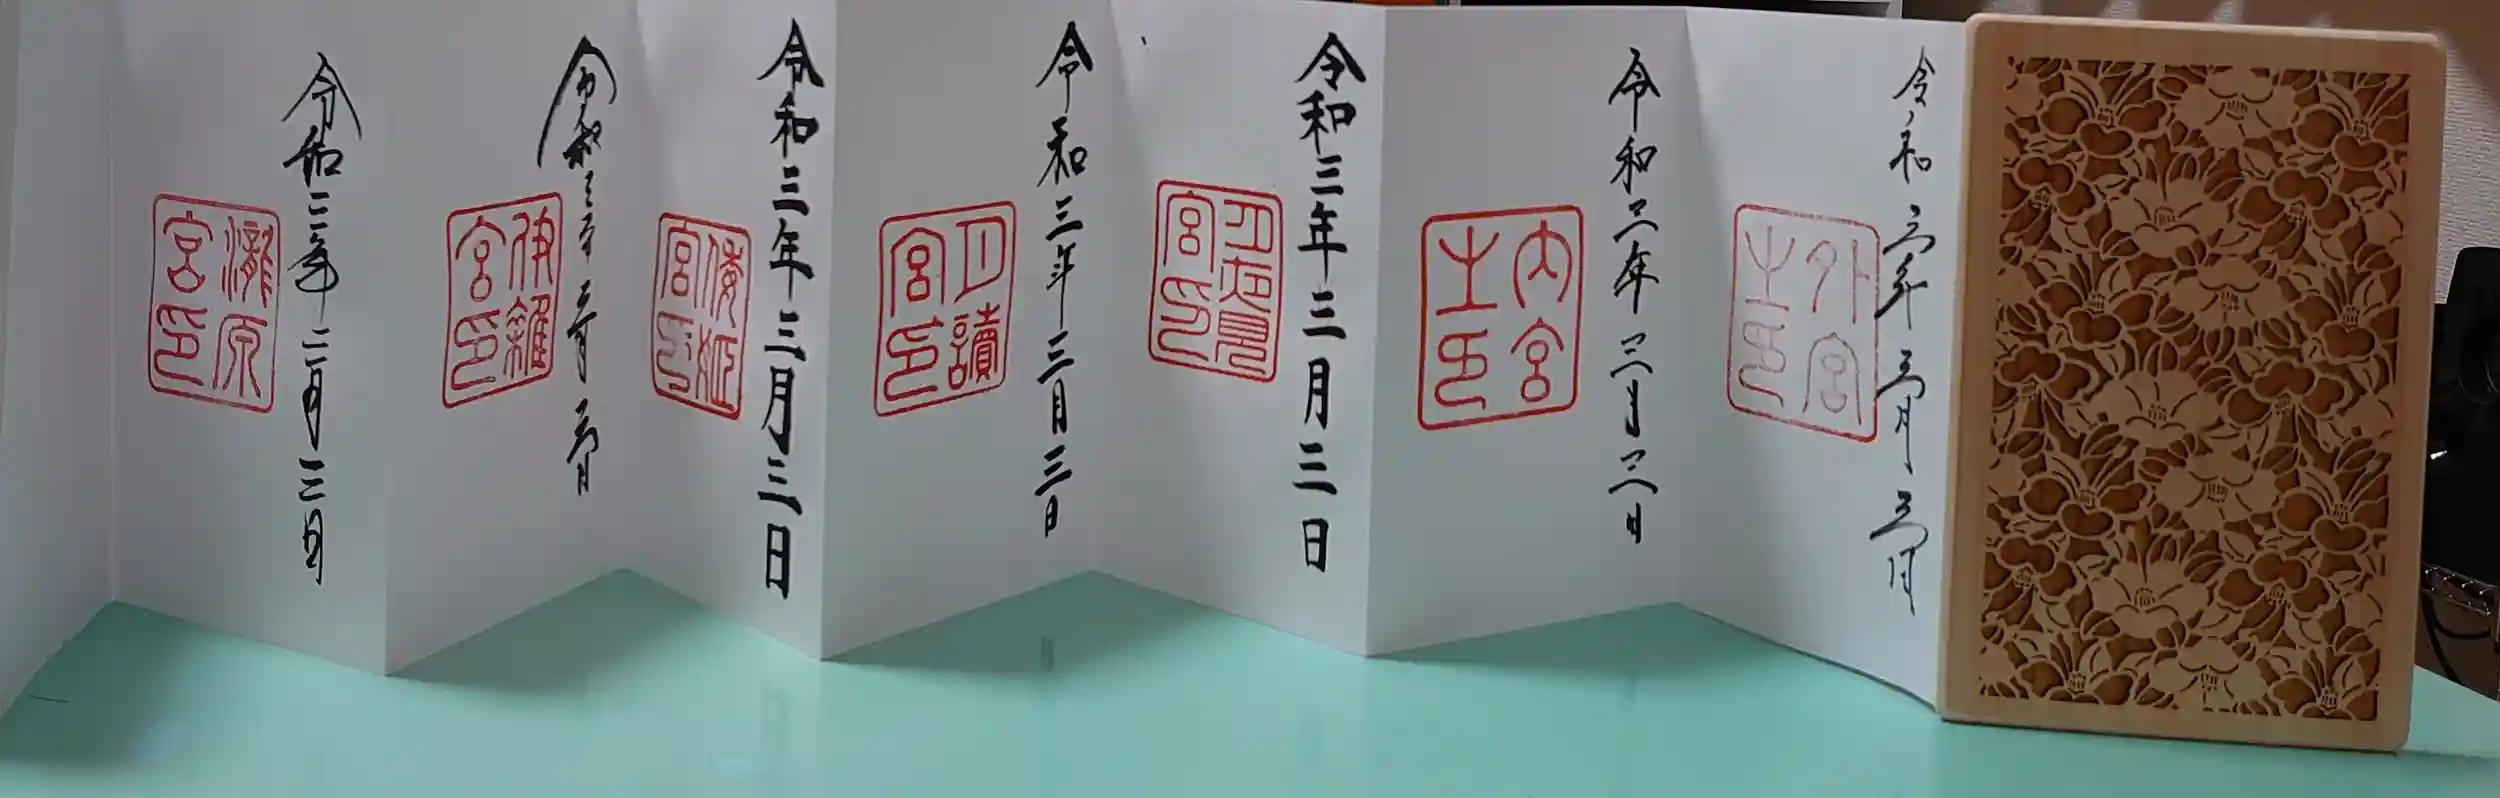 令和三年三月三日
外宮
之印
令和三年三月三日
内宮
之印
令和三年三月三日
月夜見
宮印
令和三年三月三日
月讀
宮印
令和三年三月三日
倭姫
宮印
令和三年三月三日
伊雜
宮印
令和三年三月三日
瀧原
宮印